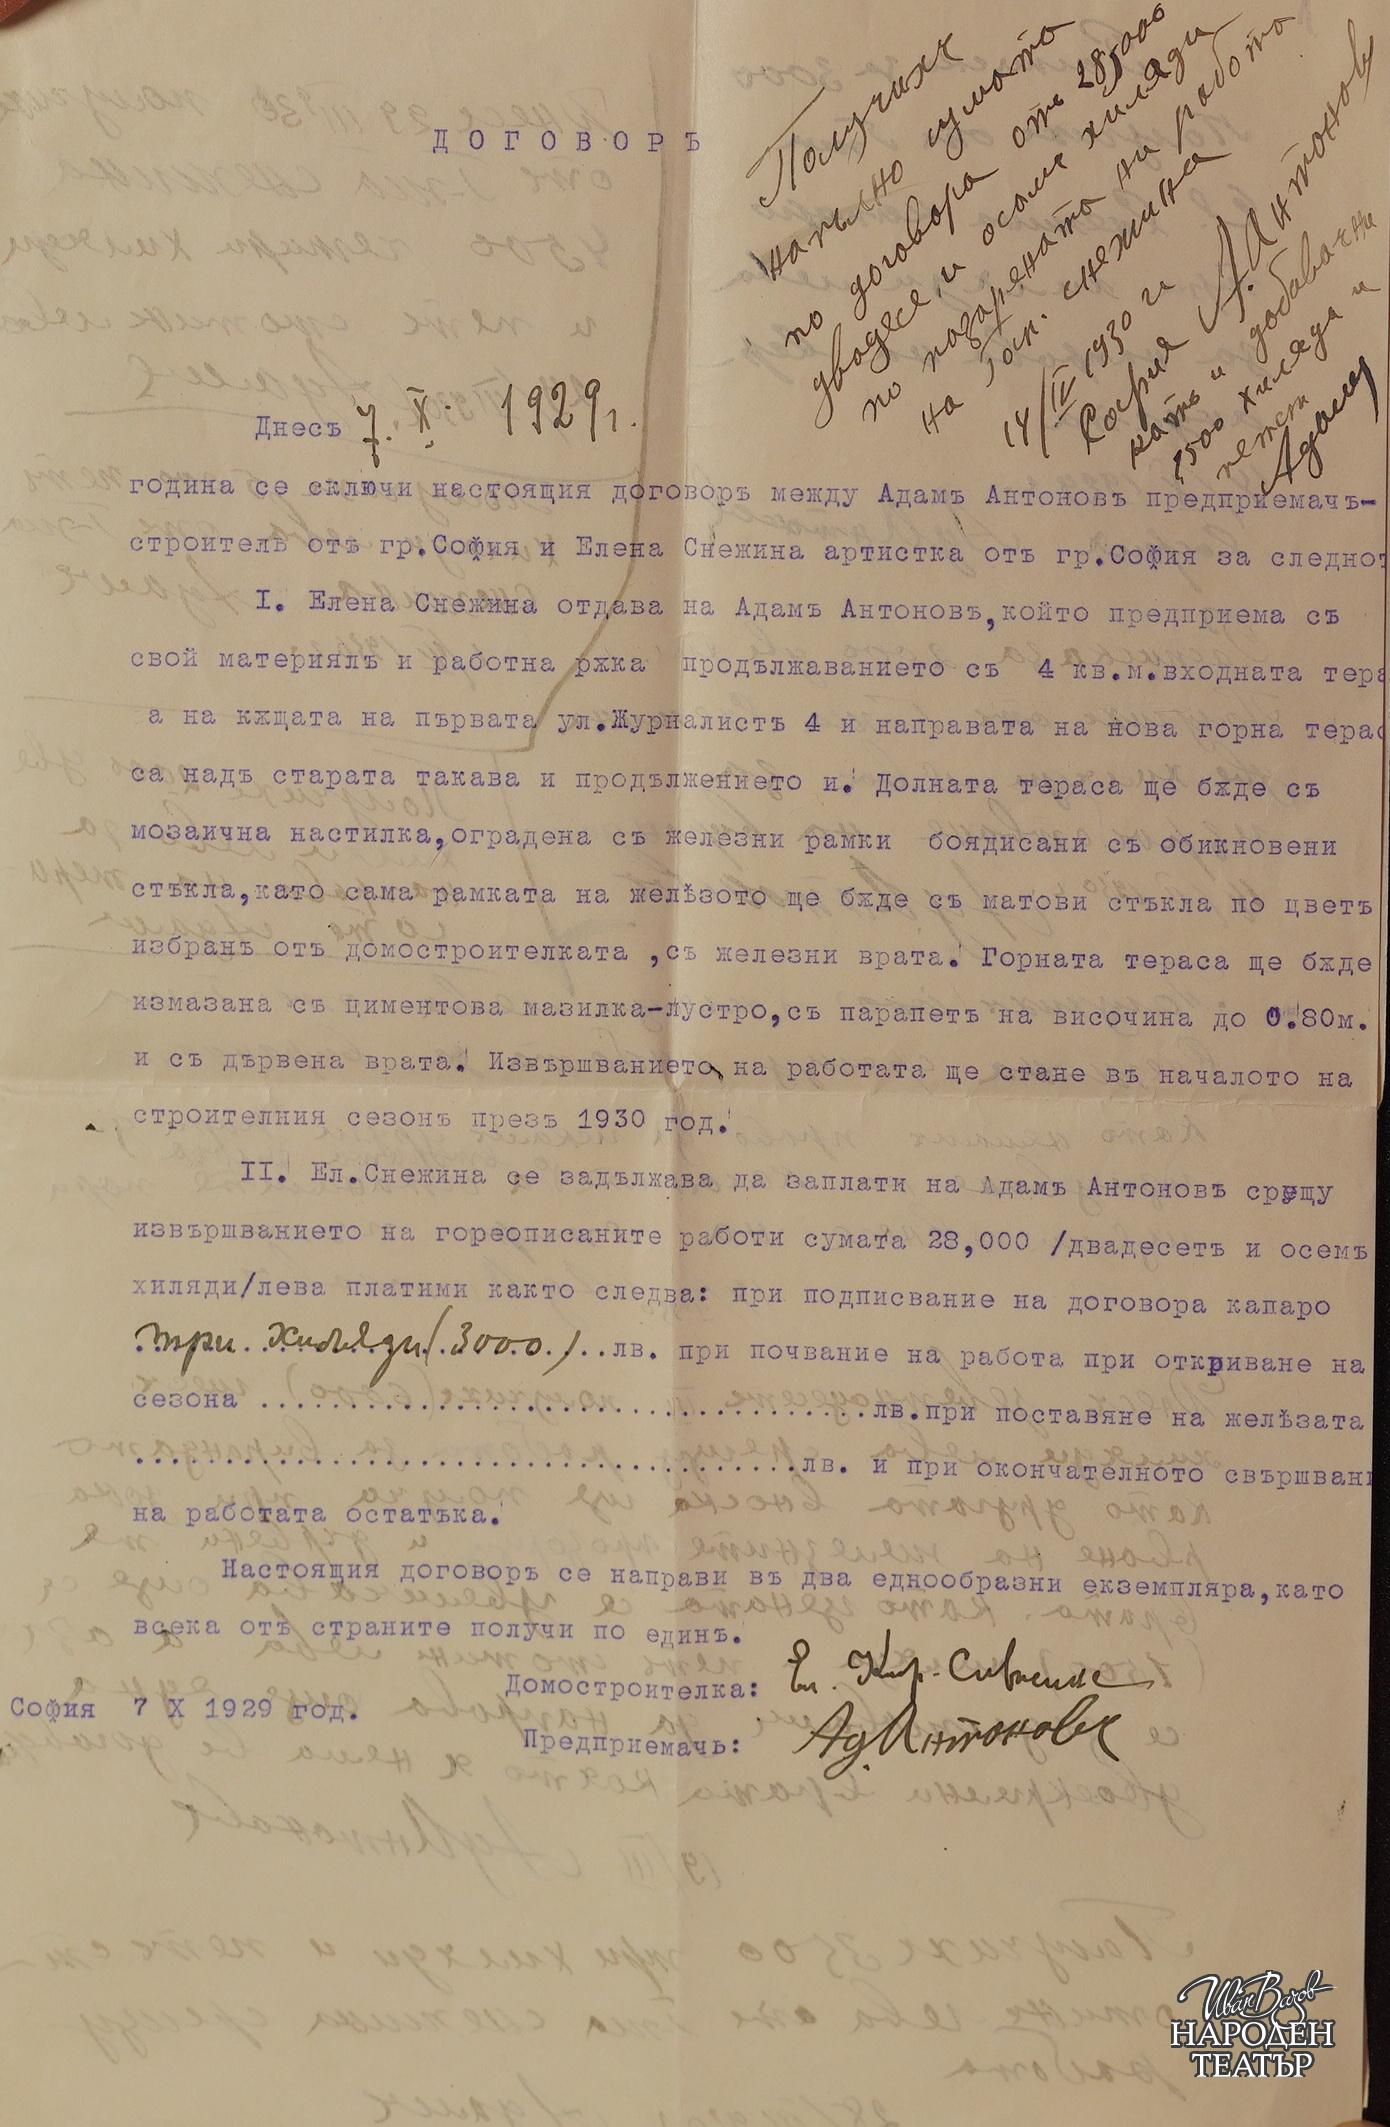 Получихъ
напълно сумата
по договора отъ 28,000
двадесе и осемъ хиляди
по
на Госп. Снежина
14/IV 1930 г.
София А. Антоновъ
и добавъчни
1500 хиляда и
петст
Адамъ
ДОГОВОРЪ
Днесъ 7. X. 1929 г.
година се сключи настоящия договоръ между Адамъ Антоновъ предприемачъ-
строителъ отъ гр.София и Елена Снежина артистка отъ гр.София за следнот
I. Елена Снежина отдава на Адамъ Антоновъ,който предприема съ
свой материялъ и работна рѫка продължаванието съ 4 кв.м.входната тера
а на кѫщата на първата ул.Журналистъ 4 и направата на нова горна терас
са надъ старата такава и продължението и. Долната тераса ще бѫде съ
мозаична настилка,оградена съ железни рамки боядисани съ обикновени
стъкла,като сама рамката на желѣзото ще бѫде съ матови стъкла по цветъ
избранъ отъ домостроителката ,съ железни врата. Горната тераса ще бѫде
измазана съ циментова мазилка-лустро,съ парапетъ на височина до 0.80м.
и съ дървена врата. Извършванието на работата ще стане въ началото на
строителния сезонъ презъ 1930 год.
II. Ел.Снежина се задължава да заплати на Адамъ Антоновъ срещу
извършванието на гореописаните работи сумата 28,000 /двадесетъ и осемъ
хиляди/лева платими както следва: при подписвание на договора капаро
три хиляди (3000) ..лв. при почвание на работа при откриване на
сезона ....................................лв.при поставяне на желѣзата
......................................лв. и при окончателното свършвани
на работата остатъка.
Настоящия договоръ се направи въ два еднообразни екземпляра,като
всека отъ страните получи по единъ.
Домостроителка: Ел. Кир.
София 7 X 1929 год.
Предприемачъ: Ад. Антоновъ
Иван Вазов
НАРОДЕН
ТЕАТЪР